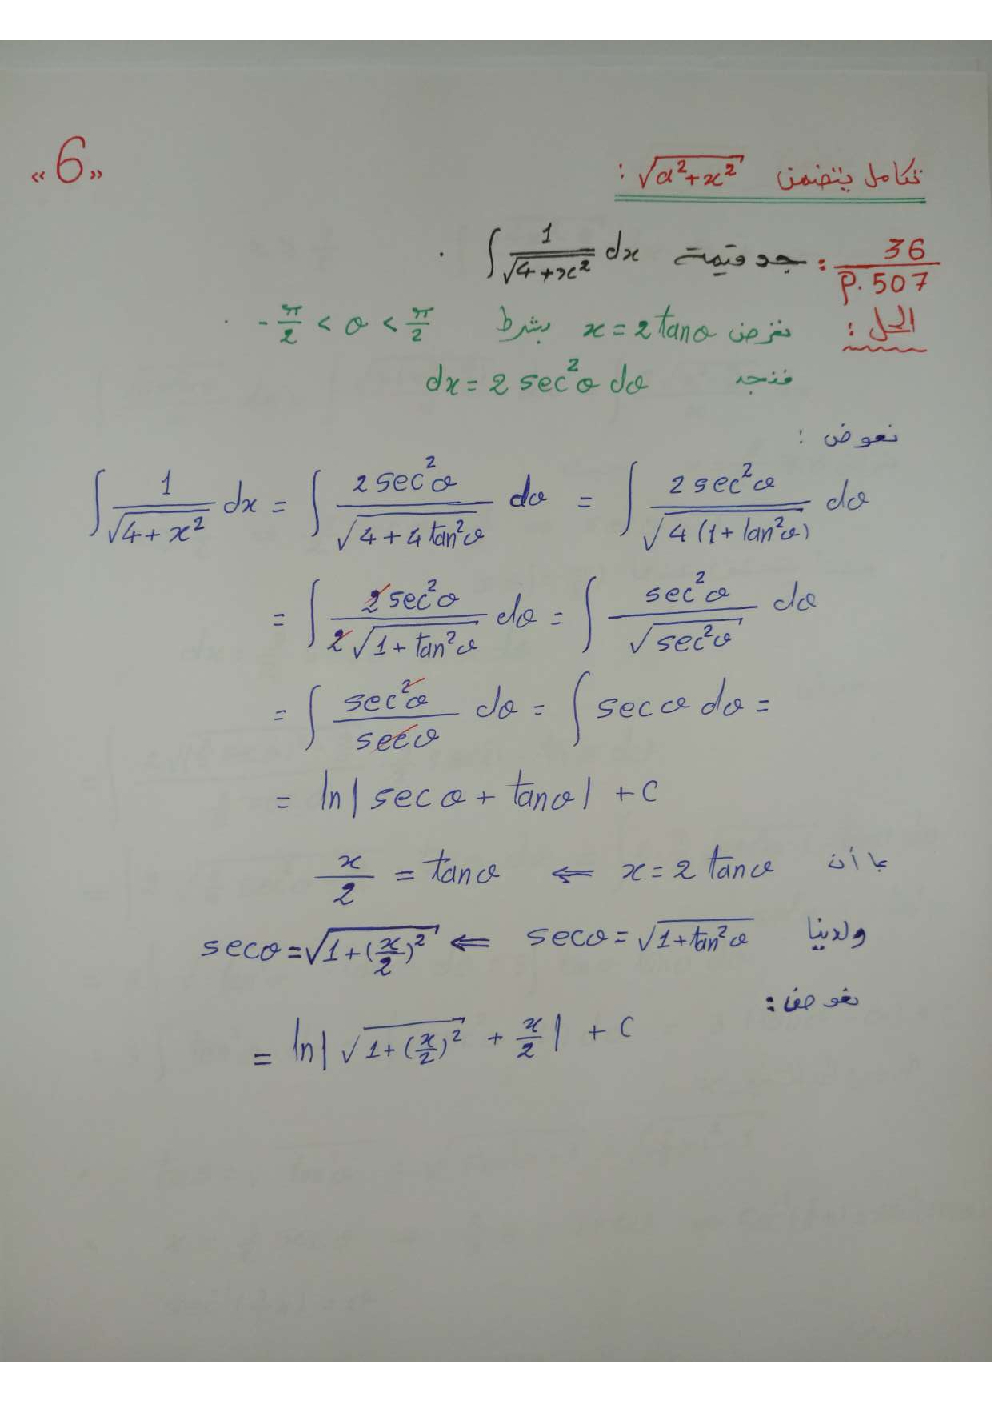 «6»
تكامل يتضمن √(a²+x²) :
36/P.507 : جد قيمة ∫ 1/√(4+x²) dx .
الحل : نفرض x = 2 tanθ بشرط -π/2 < θ < π/2 .
فنجد dx = 2 sec²θ dθ
نعوض :
∫ 1/√(4+x²) dx = ∫ 2 sec²θ/√(4+4 tan²θ) dθ = ∫ 2 sec²θ/√(4(1+tan²θ)) dθ
= ∫ 2 sec²θ/2√(1+tan²θ) dθ = ∫ sec²θ/√(sec²θ) dθ
= ∫ sec²θ/secθ dθ = ∫ secθ dθ =
= ln|secθ + tanθ| + C
بما أن x = 2 tanθ ⇐ x/2 = tanθ
ولدينا secθ = √(1+tan²θ) ⇐ secθ = √(1+(x/2)²)
نعوض :
= ln|√(1+(x/2)²) + x/2| + C